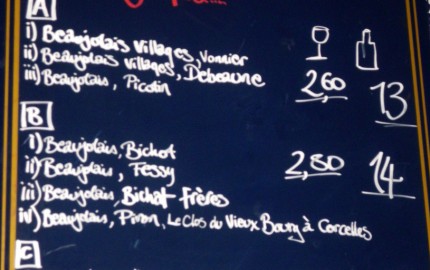 A
i) Beaujolais Villages, Vonnier
ii) Beaujolais Villages, Debeaune
iii) Beaujolais, Picotin 2,60 13
B
i) Beaujolais, Bichot
ii) Beaujolais, Fessy 2,80 14
iii) Beaujolais, Bichat-Frères
iv) Beaujolais, Piron, Le Clos du Vieux Bourg à Corcelles
C